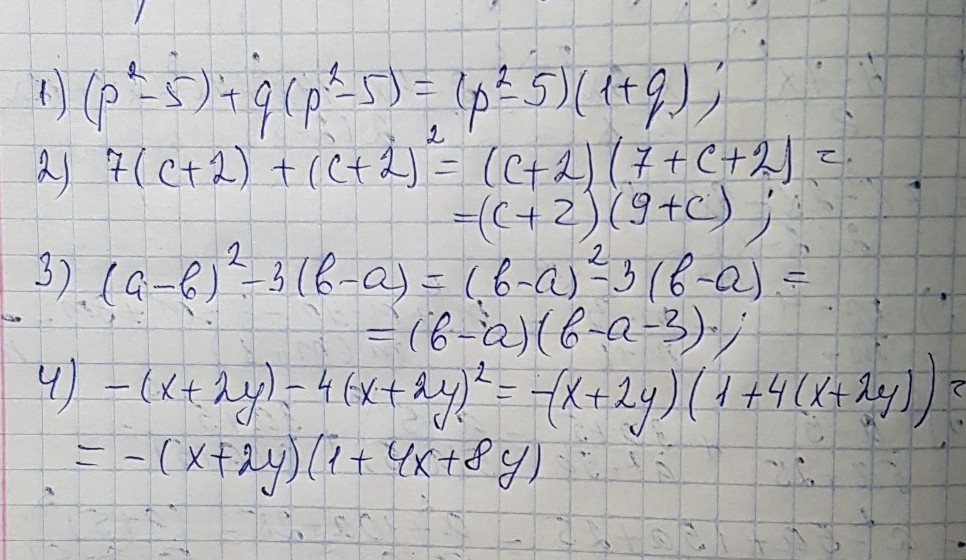 1) (p²-5)+q(p²-5)=(p²-5)(1+q);
2) 7(c+2)+(c+2)²=(c+2)(7+c+2)=
=(c+2)(9+c);
3) (a-в)²-3(в-a)=(в-a)²-3(в-a)=
=(в-a)(в-a-3);
4) -(x+2y)-4(x+2y)²=-(x+2y)(1+4(x+2y))=
=-(x+2y)(1+4x+8y)